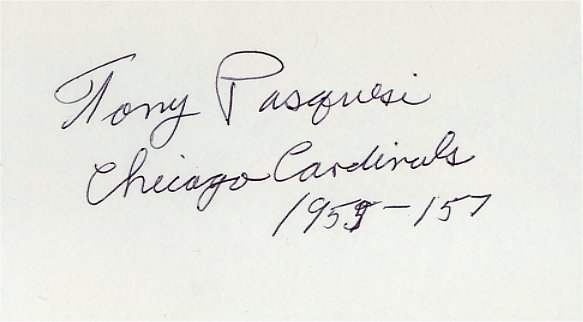 Tony Pasquesi
Chicago Cardinals
1955-'57